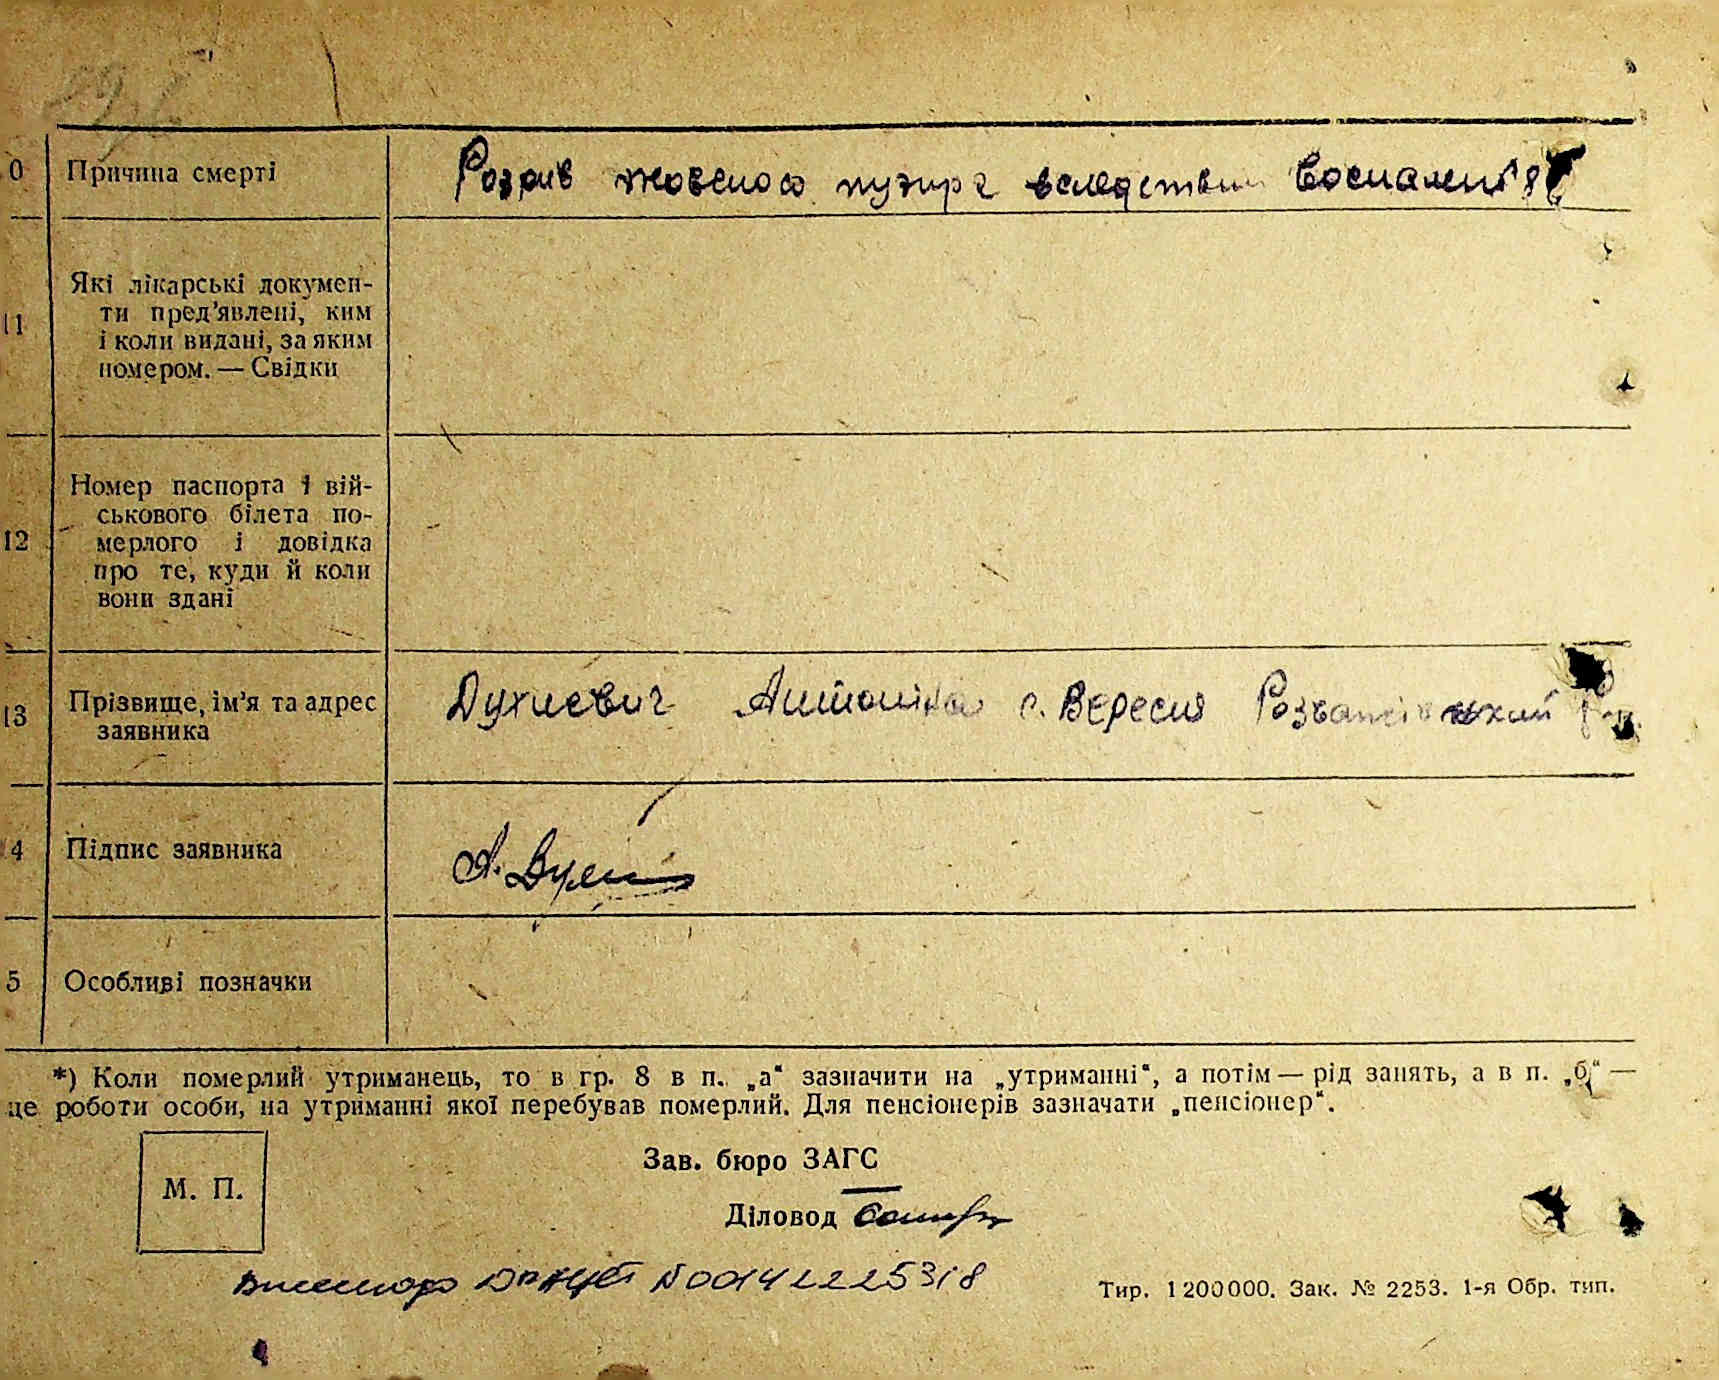 0 Причина смерті Розрив жовчного пузиря вследствии воспаления
11 Які лікарські докумен-
ти пред’явлені, ким
і коли видані, за яким
номером. — Свідки
12 Номер паспорта і вій-
ськового білета по-
мерлого і довідка
про те, куди й коли
вони здані
13 Прізвище, ім’я та адрес
заявника
Антоніна с. Вересня Розважівський
4 Підпис заявника
А.
5 Особливі позначки
*) Коли померлий утриманець, то в гр. 8 в п. „а“ зазначити на „утриманні“, а потім — рід занять, а в п. „б“ —
це роботи особи, на утриманні якої перебував померлий. Для пенсіонерів зазначати „пенсіонер“.
М. П.
Зав. бюро ЗАГС
Діловод
N 00142225318
Тир. 1200000. Зак. № 2253. 1-я Обр. тип.